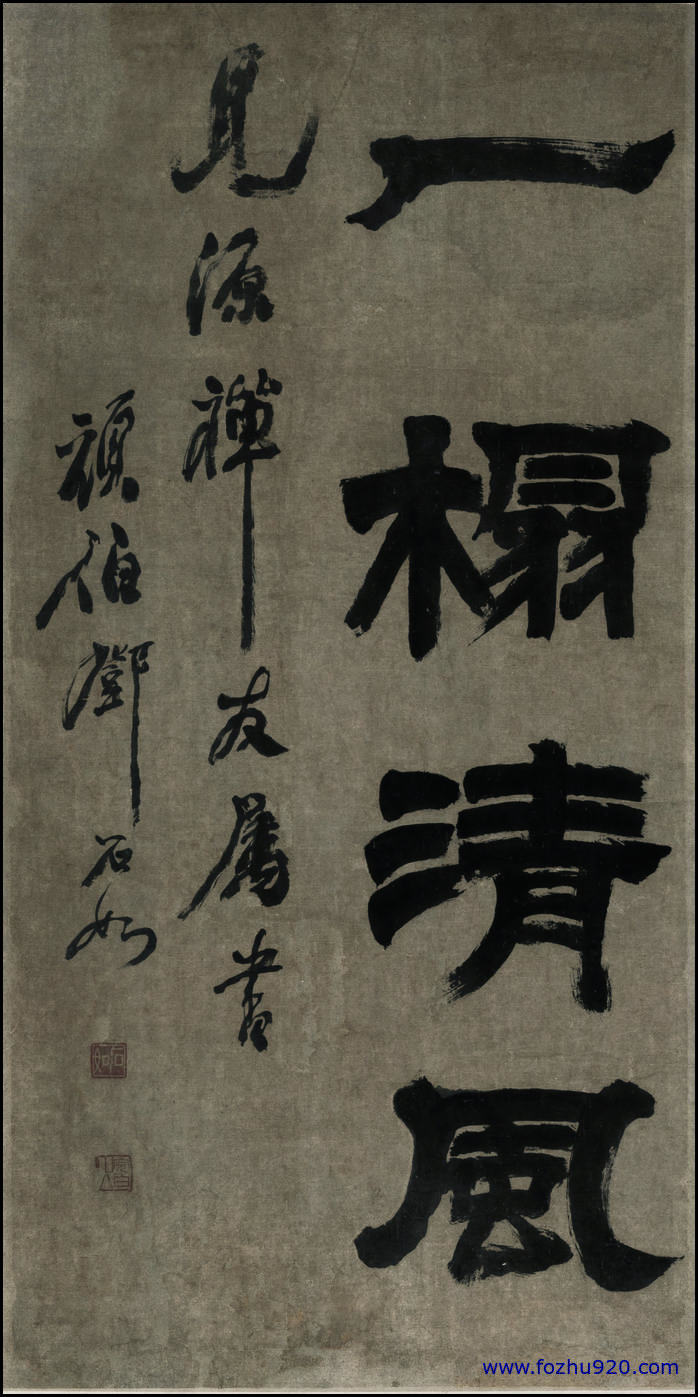 一榻清風
見源禪友屬書
頑伯鄧石如
石如
www.fozhu920.com